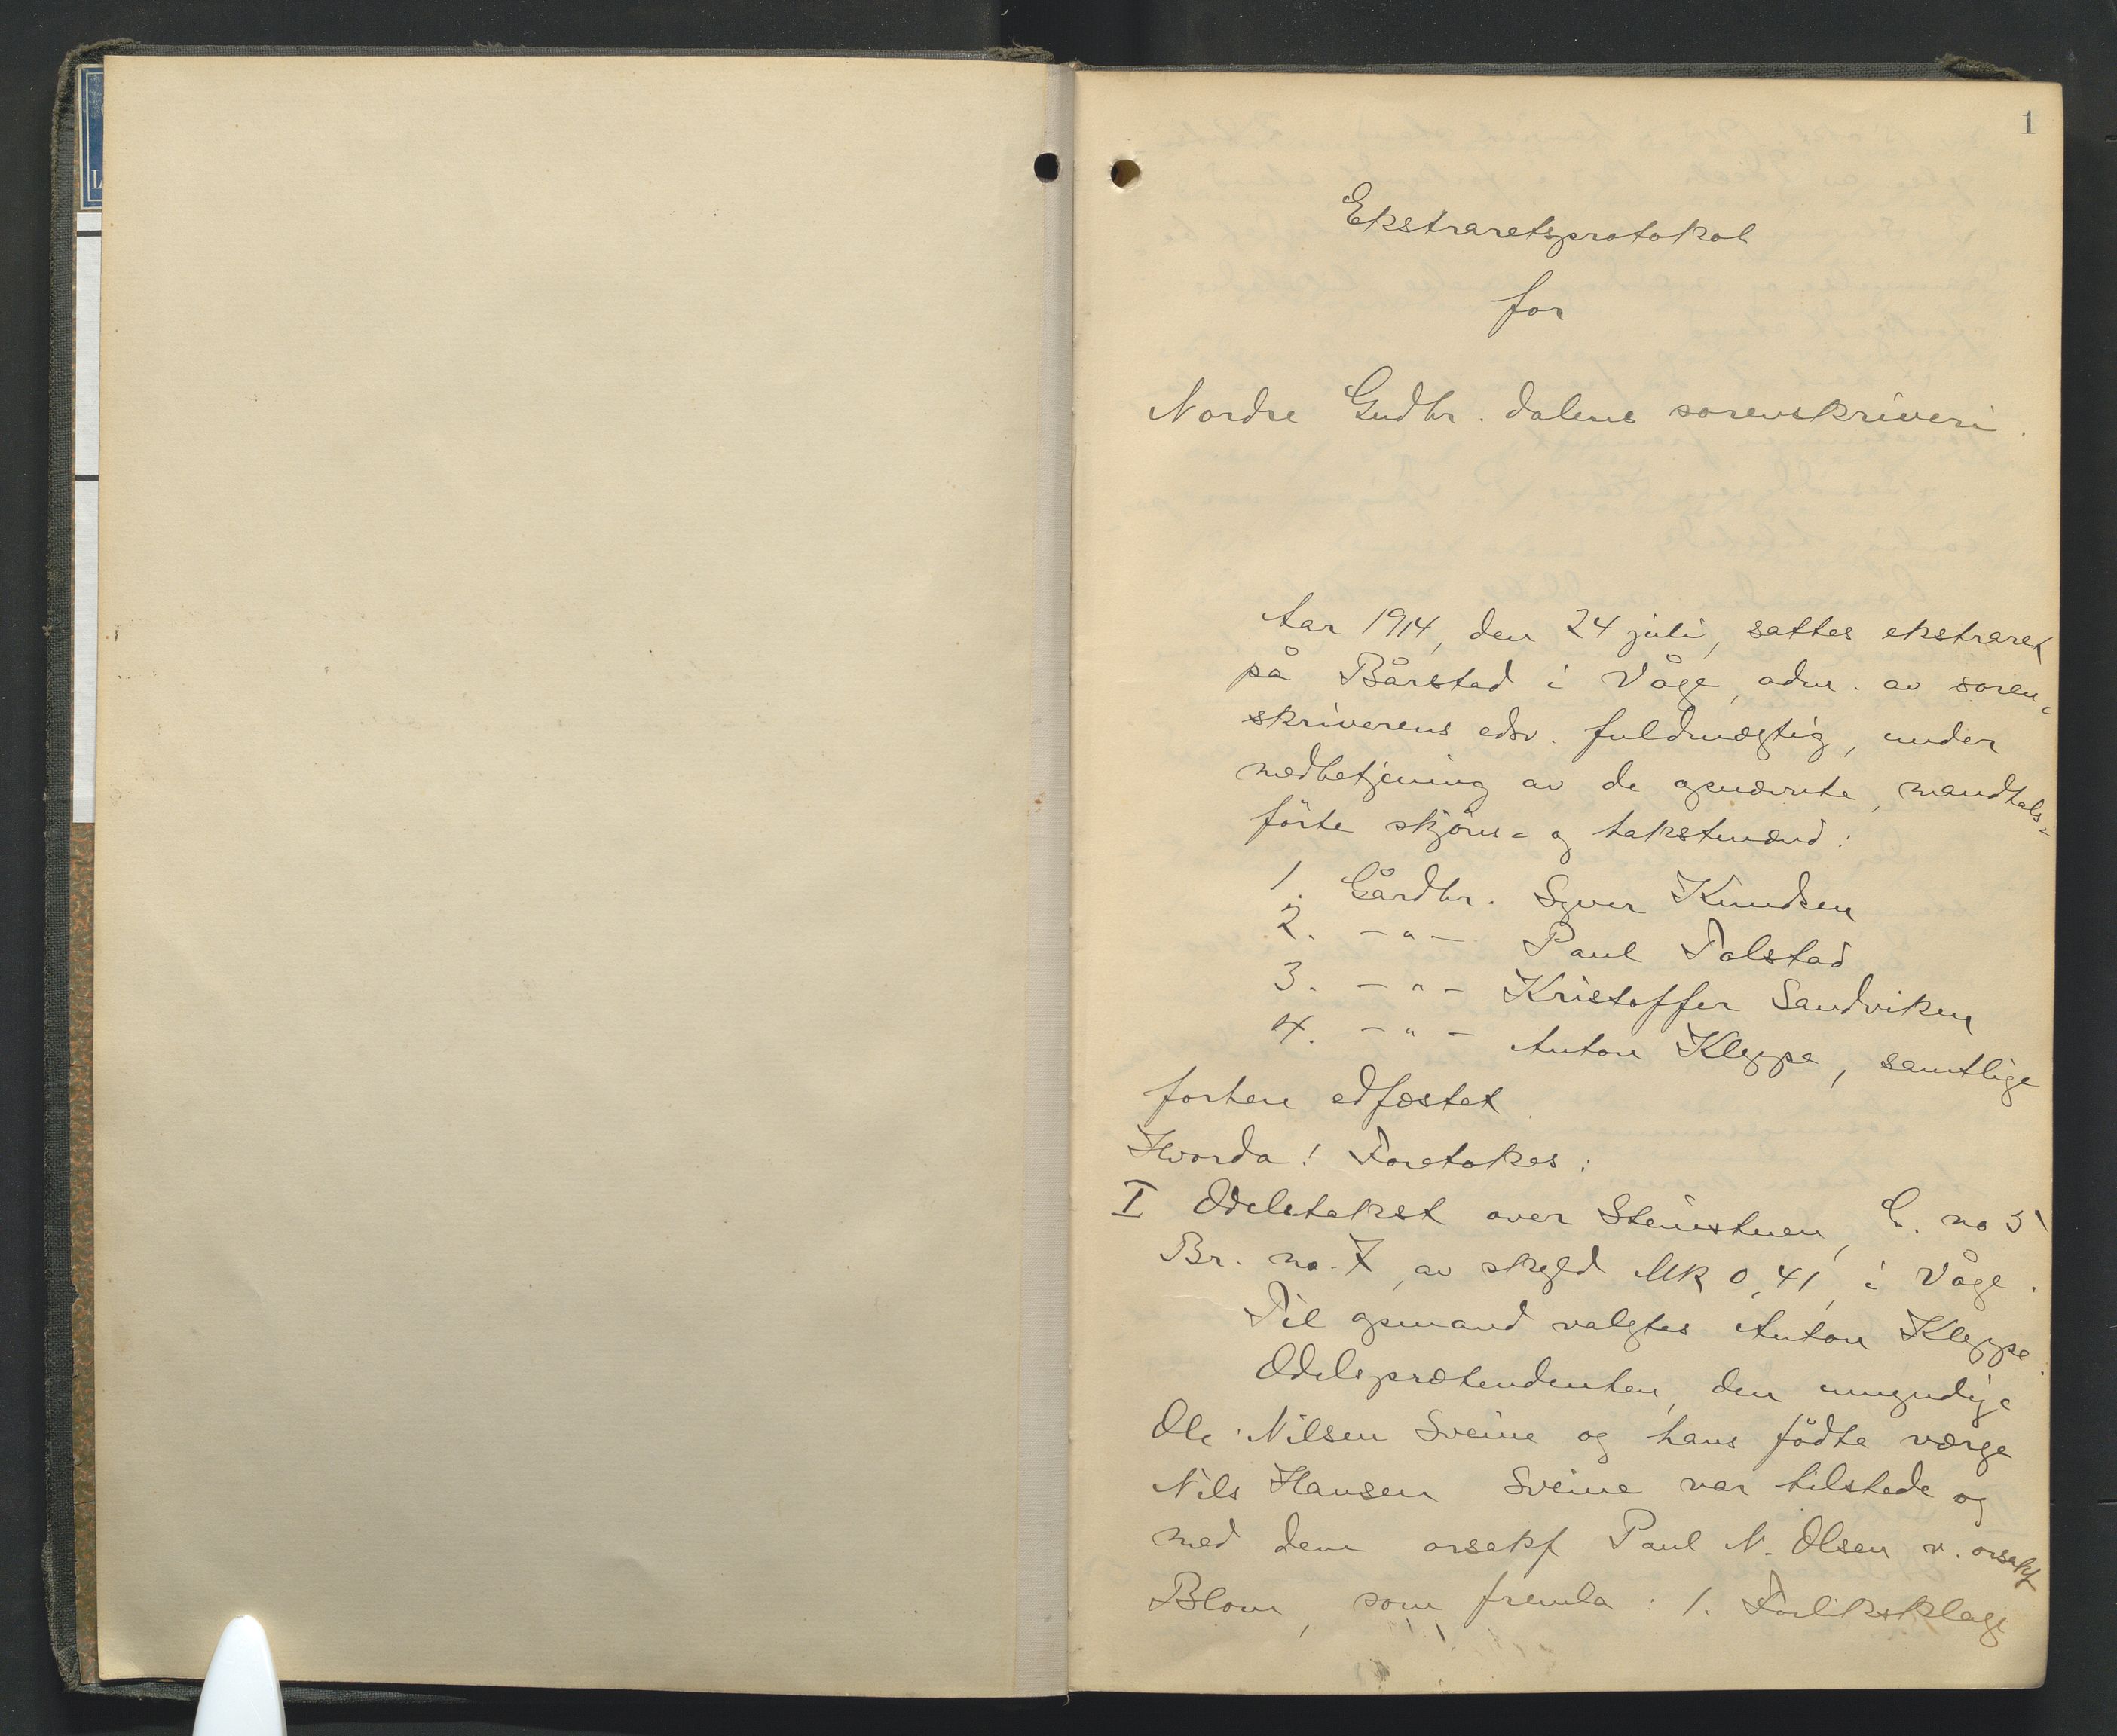 1
Ekstraretsprotokol
for
Nordre Gudbr. dalens sorenskriveri.
Aar 1914, den 24 juli, sattes ekstraret
på Bårstad i Våge, adm. av soren-
skriverens edsv. fuldmægtig, under
medbetjening av de opnævnte, mandtals-
førte skjøns- og takstmænd:
1. Gårdbr. Syver Knudsen
2. -"- Paul Tolstad
3. -"- Kristoffer Sandviken
4. -"- Anton Kleppe, samtlige
forhen edfæstet
Hvorda! Foretokes:
I Odelstakst over Steinstuen, G. no 5
Br. no. 7, av skyld Mk 0,41, i Våge.
Til opmand valgtes Anton Kleppe.
Odelsprætendenten, den umyndige
Ole Nilsen Sveine og hans fødte værge
Nils Hansen Sveine var tilstede og
med dem orsakf Paul N. Olsen v. orsakf
Blom, som fremla: 1. Forliksklage